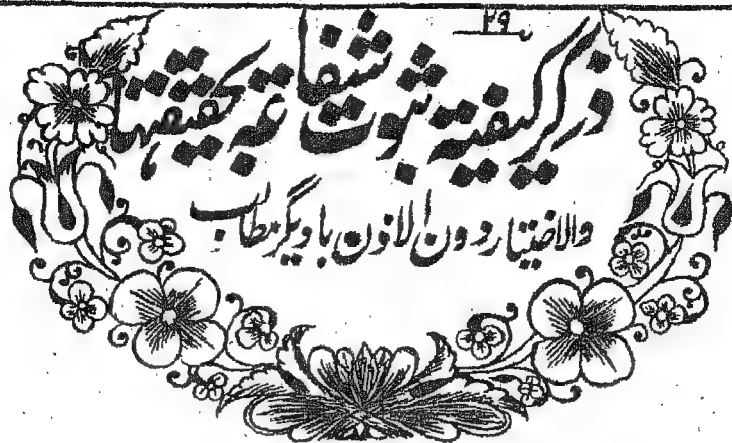 ٢٩
ذکر کیفیتہ ثبوت شفاعة بحقیقتہا
والاختیار دون الاذن با دیگر مطالب